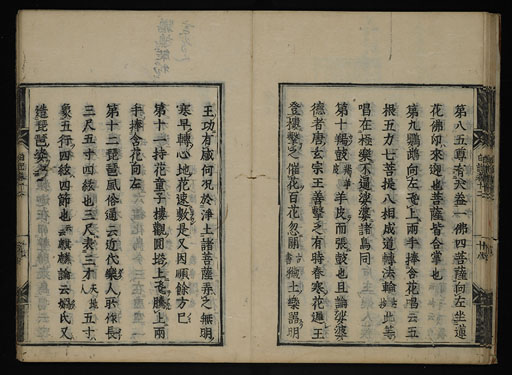 第八五尊有天卷一佛四菩薩向左坐蓮
花佛印來迎也菩薩皆合掌也
第九鸚鵡向左飛上兩手捧含花唱云五
根五力七菩提八相成道轉法輪此等
唱在極樂不通娑婆諸鳥同
第十羯鼓羊皮而張鼓也且論娑婆
德者唐玄宗王善擊之有時春寒花遲王
登樓擊之催花百花忽開梵土樂器明
王功有威何況於淨土諸菩薩弄之無明
寒早轉心地花速敷是又因順餘方已
第十一持花童子樓觀圓塔上飛騰上兩
手捧含花向左
第十二琵琶風俗通云近代樂人所作長
三尺五寸四絃也三尺表三才五寸
象五行四絃四節也云麒麟論云媧氏又
造琵琶